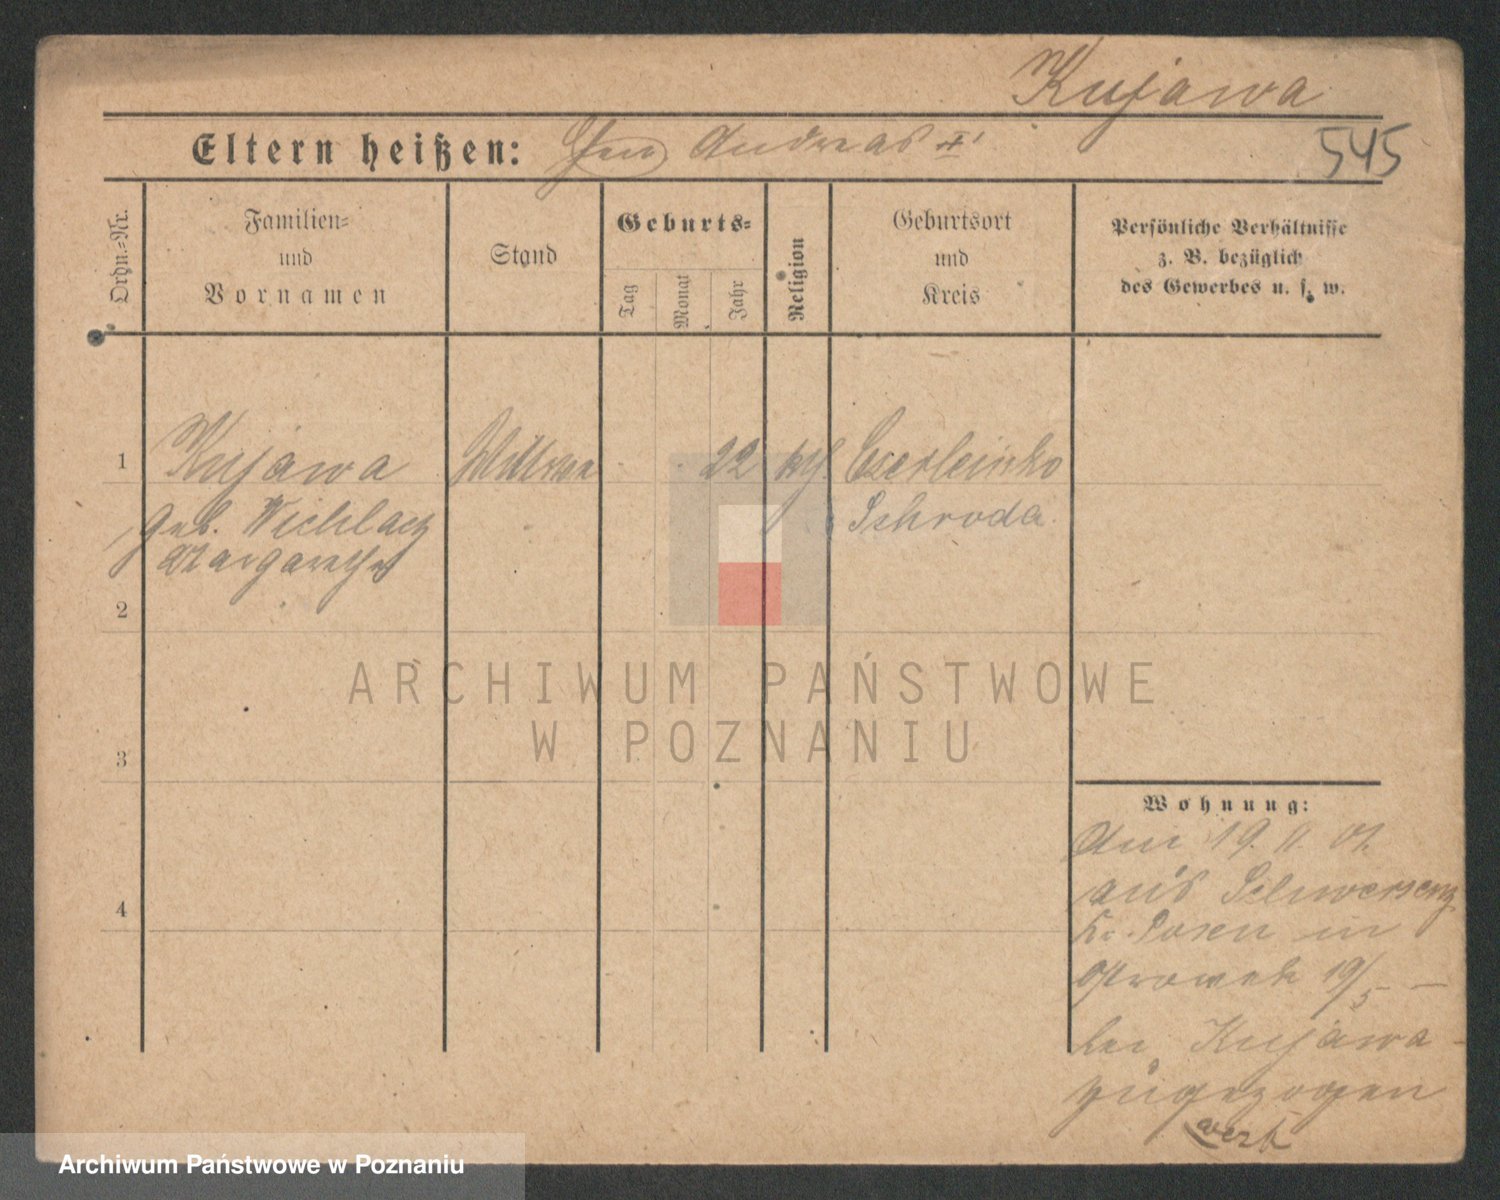 Kujawa
Eltern heißen: Andreas
545
Ordn.-Nr.
Familien-
und
Vornamen
Stand
Geburts-
Tag
Monat
Jahr
Religion
Geburtsort
und
Kreis
Persönliche Verhältnisse
z. B. bezüglich
des Gewerbes u. s. w.
1
Kujawa
Wittwe
22
kth.
Czerleinko
geb. Wichlacz
Schroda
Margaretha
2
3
4
Wohnung:
Am 19. 11. 01.
aus Schwersenz
Kr. Posen in
Ostrowek 19/5
bei Kujawa
zugezogen
verh
ARCHIWUM PAŃSTWOWE
W POZNANIU
Archiwum Państwowe w Poznaniu